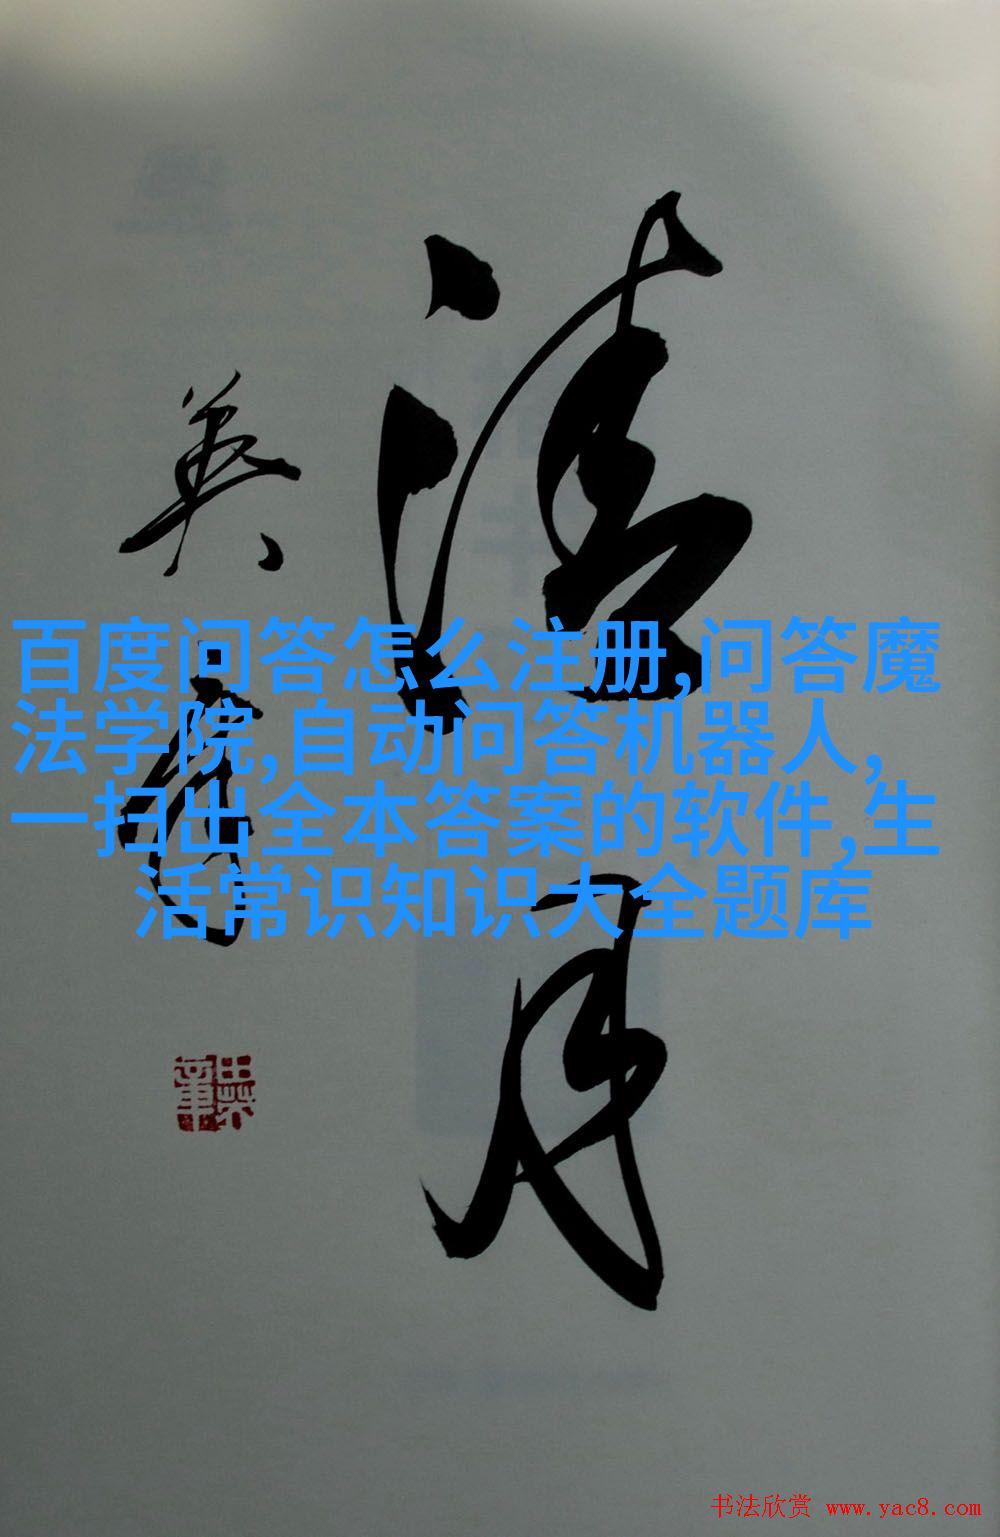 清月
英章
百度问答怎么注册,问答魔
法学院,自动问答机器人,
一扫出全本答案的软件,生
活常识知识大全题库
书法欣赏 www.yac8.com